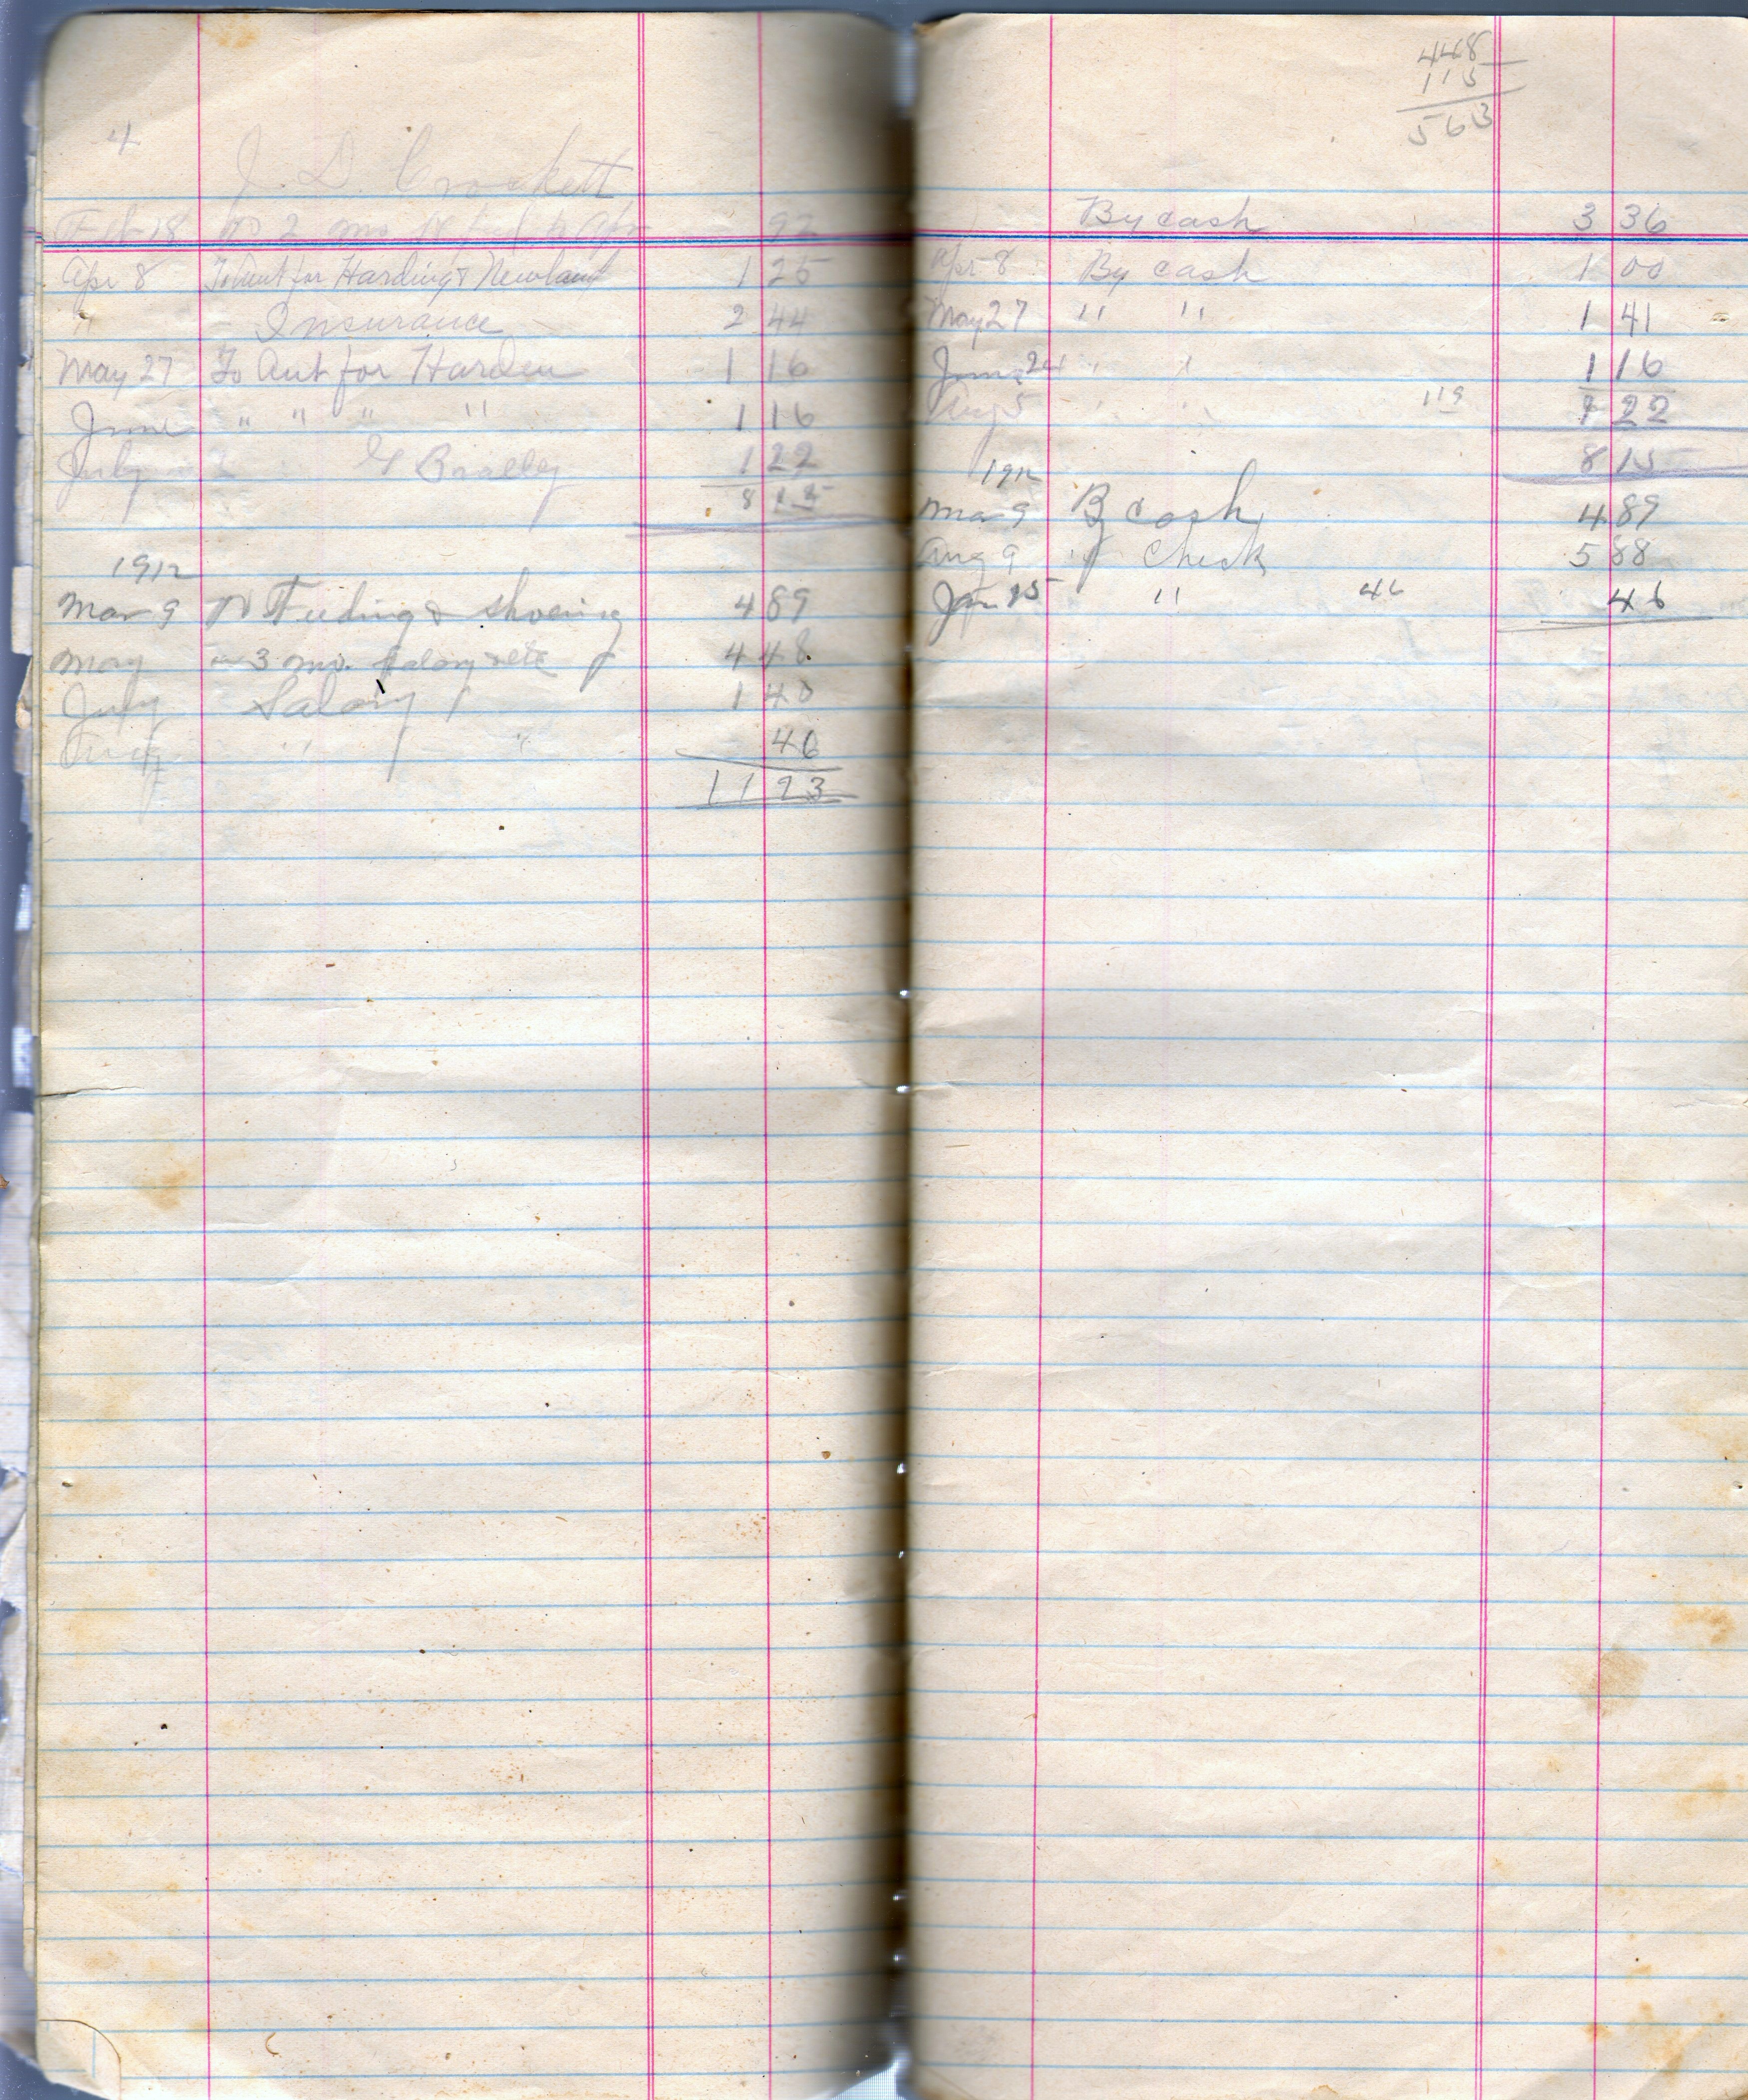 4
J. D. Crockett
Feb 18 To 2 mo 92
Apr 8 To Aut for Harding & Newland 1 25
" Insurance 2 44
May 27 To Aut for Harden 1 16
June " " " " 1 16
July 2 Bradley 1 22
8 15
1912
Mar 9 To Feeding & Shoeing 4 89
May " 3 mo. Salary 4 48
July Salary 1 40
" " 46
11 23
448
115
563
By cash 3 36
Apr 8 By cash 1 00
May 27 " " 1 41
June 24 " " 1 16
Aug 5 " " 119 1 22
8 15
1912
Mar 9 By cash 4 89
Aug 9 " Check 5 88
Jan 25 " 46 46